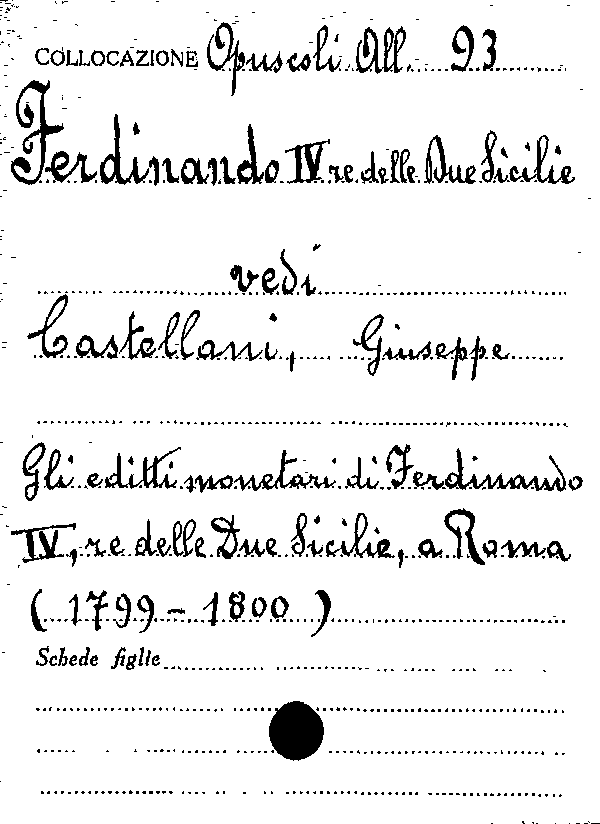 COLLOCAZIONE Opuscoli All. 93
Ferdinando IV re delle Due Sicilie
vedi
Castellani, Giuseppe
Gli editti monetari di Ferdinando
IV, re delle Due Sicilie, a Roma
(1799-1800)
Schede figlie